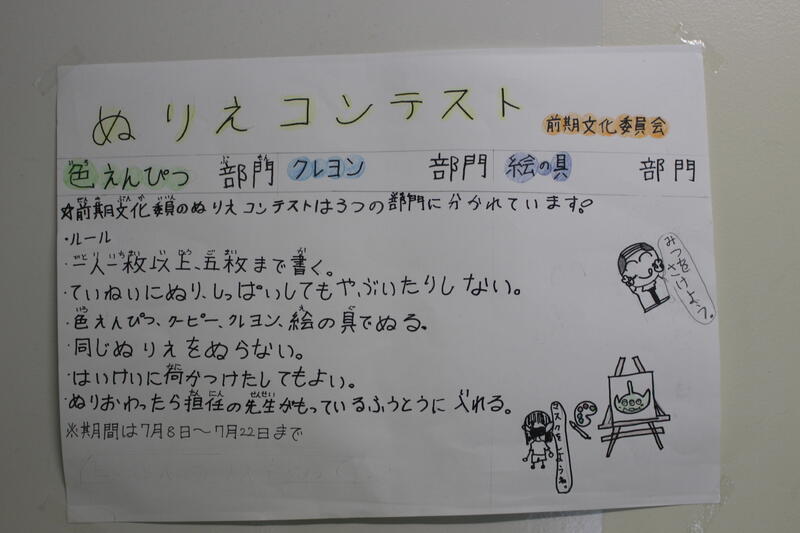 ぬりえコンテスト
前期文化委員会
色えんぴつ 部門 クレヨン 部門 絵の具 部門
☆前期文化委員のぬりえコンテストは3つの部門に分かれています。
・ルール
・一人一枚以上、五枚まで書く。
・ていねいにぬり、しっぱいしてもやぶいたりしない。
・色えんぴつ、クーピー、クレヨン、絵の具でぬる。
・同じぬりえをぬらない。
・はいけいに何かつけたしてもよい。
・ぬりおわったら担任の先生がもっているふうとうに入れる。
※期間は7月8日〜7月22日まで
みつをさけよう。
マスクをしようね。